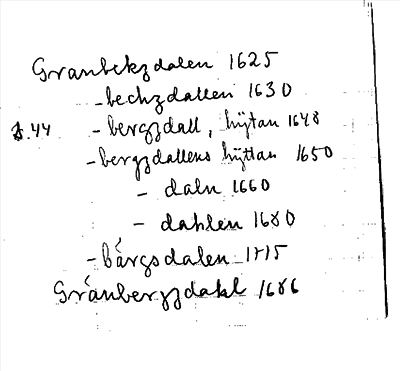 Granbekzdalen 1625
-bechzdallen 1630
s.44 - bergzdall, hÿtan 1648
-bergzdallens hÿttan 1650
- daln 1660
- dahlen 1680
-bårgsdalen 1715
Gránbergzdahl 1686